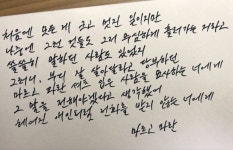 처음엔 모든 게 크고 멋진 일이지만
나중엔 그런 것들도 그저 무심하게 흘러가는 거라고
쓸쓸히 말하던 사람도 있었지
그러니, 부디 잘 살아달라고 당부하던
마르고 파란 셔츠 입은 사람을 묘사하는 너에게
그 말을 전해야겠다고 생각했어
헤어진 애인처럼 전화를 받지 않는 너에게
마르고 파란